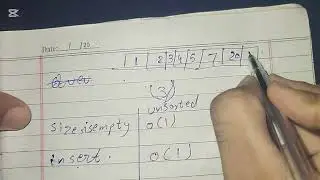 CapCut
Date: / /20
1 2 3 4 5 7 20
(3)
unsorted
size, isempty O(1)
insert O(1)